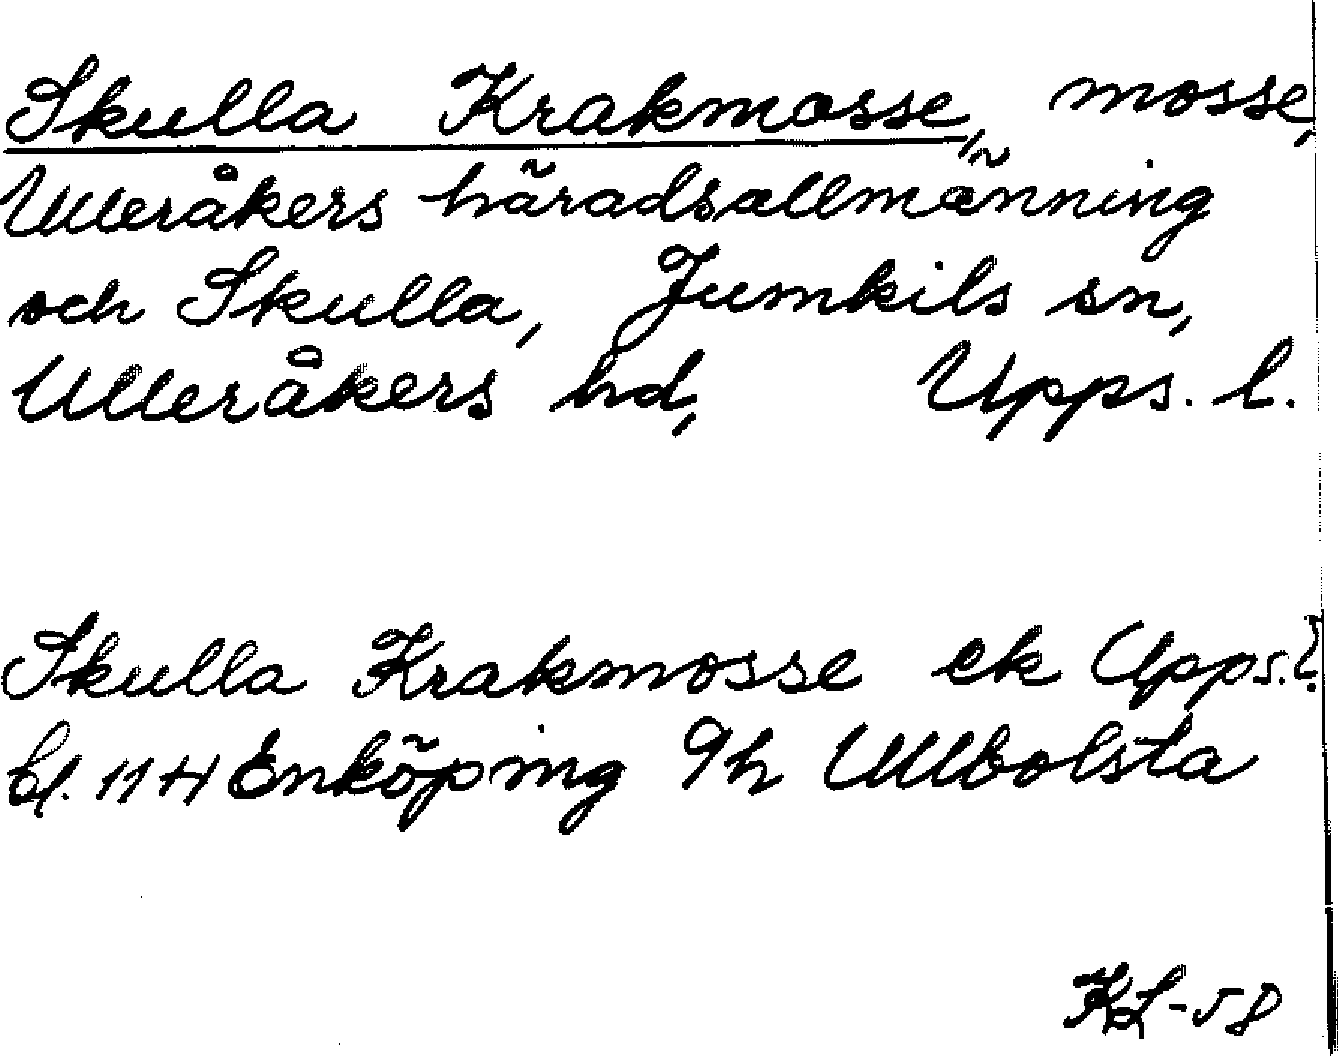 Skulla Krakmosse, mosse,
Ulleråkers häradsallmänning
och Skulla, Jumkils sn,
Ulleråkers hd, Upps. l.
Skulla Krakmosse ek Upps. l.
bl. 11 H Enköping 9h Ullbolsta
KL-58